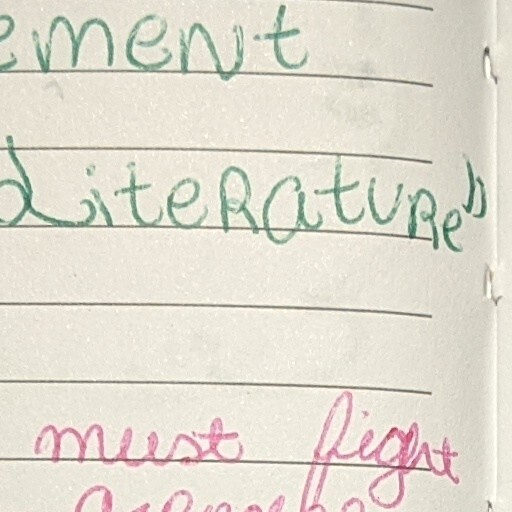 ement
LiteRatuRe b
must fight